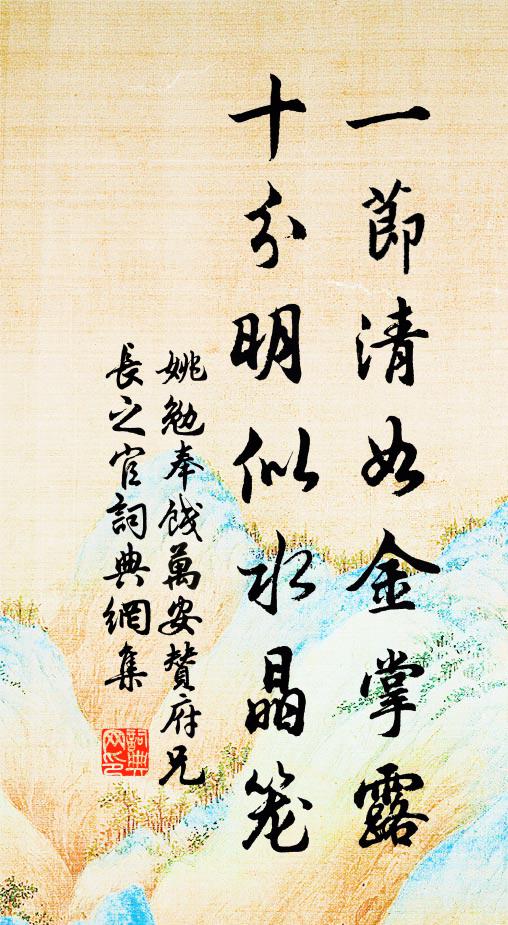 一節清如金掌露
十分明似水晶笼
姚勉奉餞萬安贊府兄
長之官詞典網集
詞典
网印